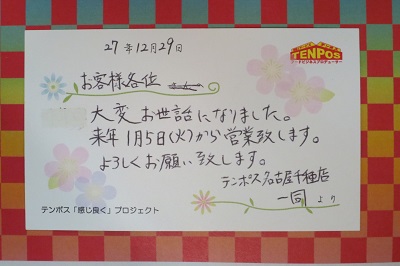 27年12月29日
TENPOS
フードビジネスプロデューサー
お客様各位
大変お世話になりました。
来年1月5日(火)から営業致します。
よろしくお願い致します。
テンポス名古屋千種店
一同より
テンポス「感じ良く」プロジェクト